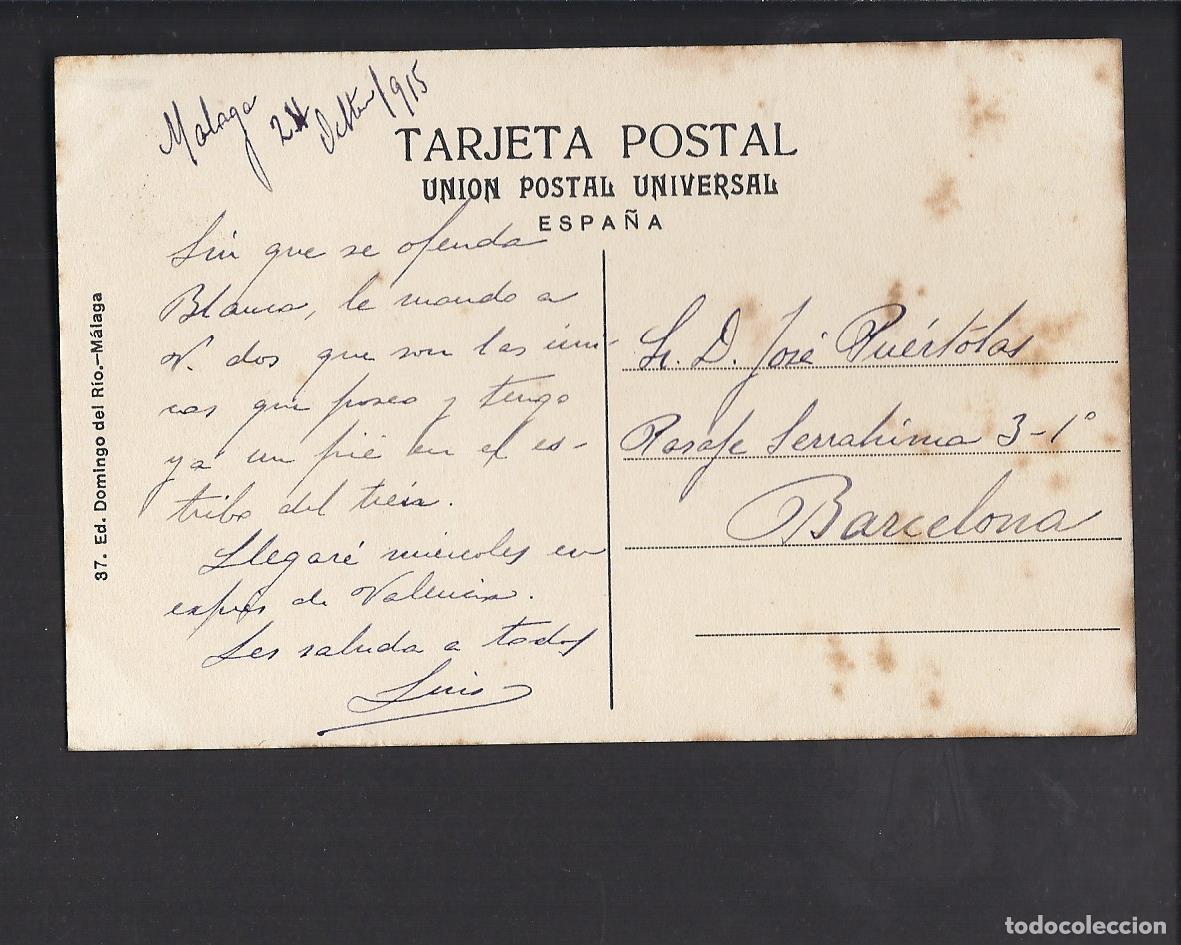 Malaga 24 Octbre/915
TARJETA POSTAL
UNION POSTAL UNIVERSAL
ESPAÑA
Sin que se ofenda
Blanca, le mando a
V. dos que son las úni-
cas que poseo y tengo
ya un pié en el es-
tribo del tren.
Llegaré miércoles en
exprés de Valencia.
Les saluda a todos
Luis
Sr. D. José Puértolas
Pasaje Serrahima 3-1º
Barcelona
37. Ed. Domingo del Río.—Málaga
todocoleccion